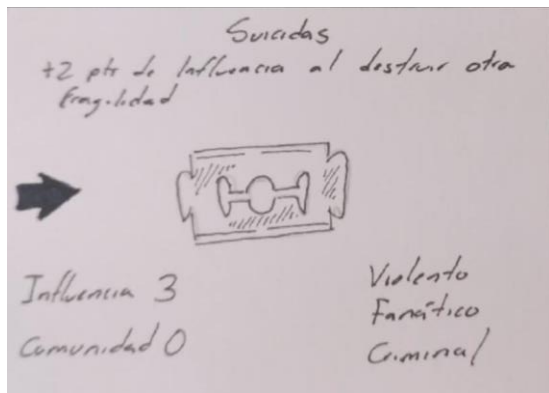 Suicidas
+2 pts de Influencia al destruir otra
Fragilidad
Influencia 3
Comunidad 0
Violento
Fanático
Criminal